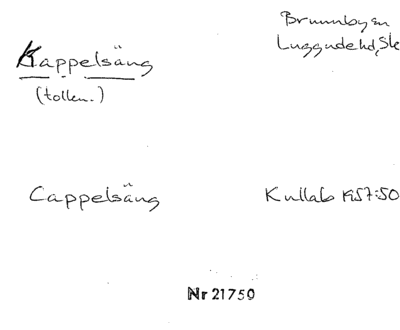 Brunnby sn
Luggude hd, Sk
Kappelsäng
(tolken.)
Cappelsäng
Kullab 1957:50
Nr 21750